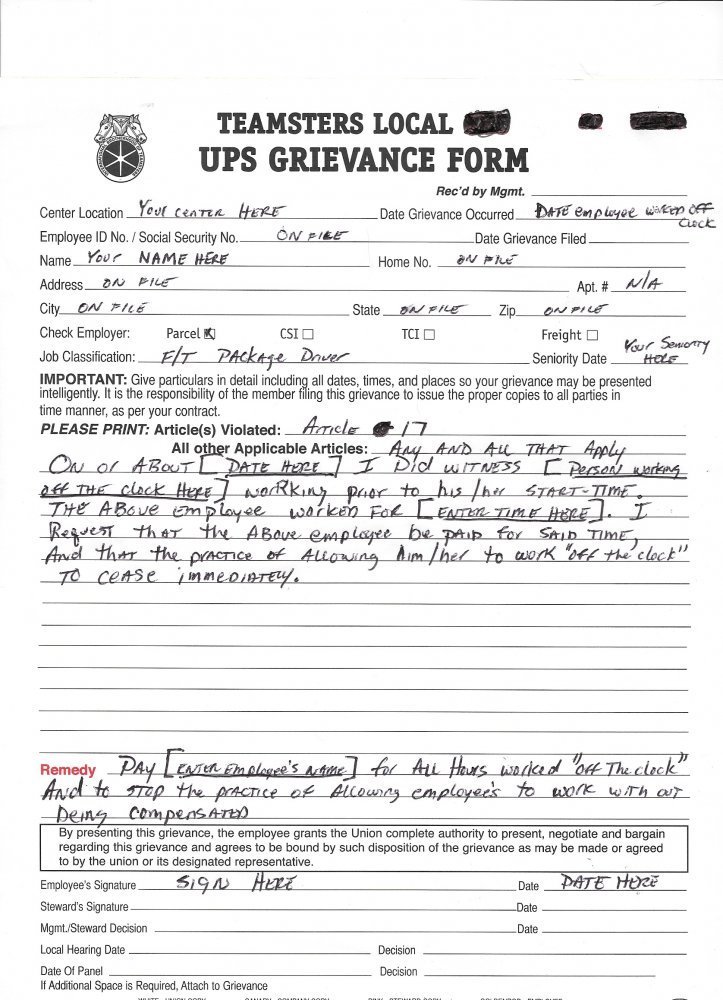 TEAMSTERS LOCAL
UPS GRIEVANCE FORM
Rec'd by Mgmt.
Center Location Your center HERE Date Grievance Occurred DATE employee worked OFF clock
Employee ID No. / Social Security No. ON FILE Date Grievance Filed
Name Your NAME HERE Home No. ON FILE
Address ON FILE Apt. # N/A
City ON FILE State ON FILE Zip ON FILE
Check Employer: Parcel CSI TCI Freight
Job Classification: F/T PACKAge Driver Seniority Date Your Seniority HERE
IMPORTANT: Give particulars in detail including all dates, times, and places so your grievance may be presented
intelligently. It is the responsibility of the member filing this grievance to issue the proper copies to all parties in
time manner, as per your contract.
PLEASE PRINT: Article(s) Violated: Article 17
All other Applicable Articles: Any AND All THAT Apply
On or ABOUT [DATE HERE] I Did WITNESS [Person working
off THE clock HERE] worRking prior to his/her START-TIME.
THE ABove employee worked FOR [ENTER TIME HERE]. I
Request that the ABove employee be PAID for SAID TIME,
And that the practice of Allowing him/her to work "off the clock"
TO ceASe immeDiATely.
Remedy PAY [ENTER Employee's NAME] for All Hours worked "off The clock"
And to STOP the PRACTICE of Allowing employee's to work with out
being compensATED
By presenting this grievance, the employee grants the Union complete authority to present, negotiate and bargain
regarding this grievance and agrees to be bound by such disposition of the grievance as may be made or agreed
to by the union or its designated representative.
Employee's Signature SIGN HERE Date DATE HERE
Steward's Signature Date
Mgmt./Steward Decision Date
Local Hearing Date Decision
Date Of Panel Decision
If Additional Space is Required, Attach to Grievance